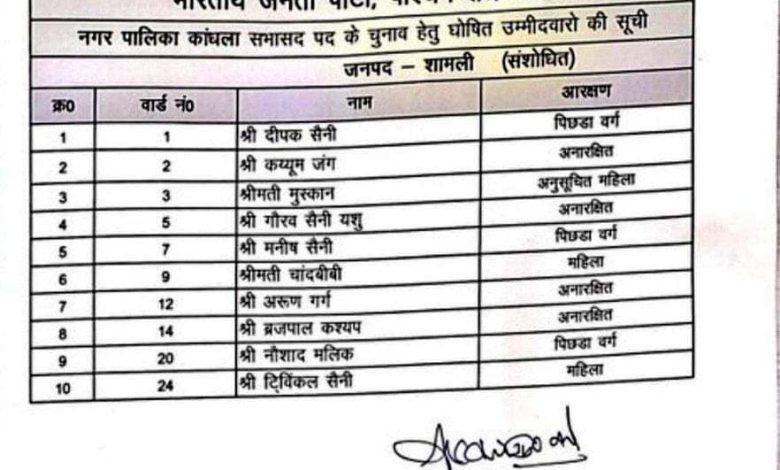 भारतीय जनता पार्टी,
नगर पालिका कांधला सभासद पद के चुनाव हेतु घोषित उम्मीदवारो की सूची
जनपद – शामली (संशोधित)
क्र0 वार्ड नं0 नाम आरक्षण
1 1 श्री दीपक सैनी पिछडा वर्ग
2 2 श्री कय्यूम जंग अनारक्षित
3 3 श्रीमती मुस्कान अनुसूचित महिला
4 5 श्री गौरव सैनी यशु अनारक्षित
5 7 श्री मनीष सैनी पिछडा वर्ग
6 9 श्रीमती चांदबीबी महिला
7 12 श्री अरूण गर्ग अनारक्षित
8 14 श्री ब्रजपाल कश्यप अनारक्षित
9 20 श्री नौशाद मलिक पिछडा वर्ग
10 24 श्री ट्विंकल सैनी महिला